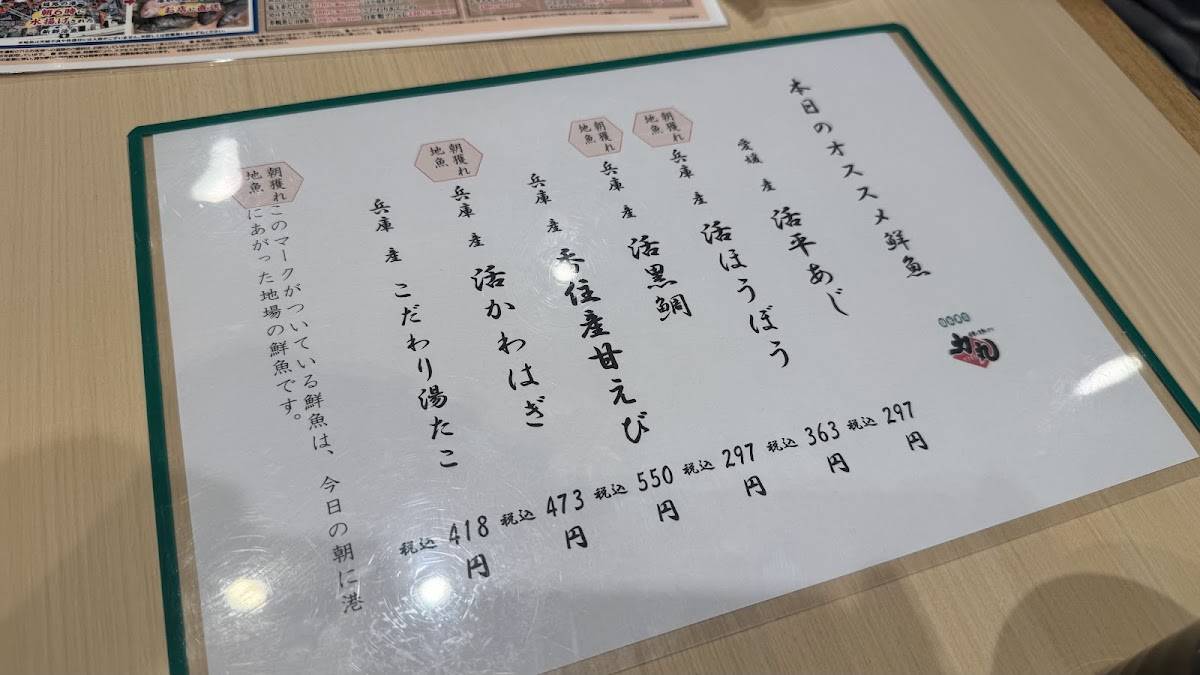 本日のオススメ鮮魚
愛媛 産 活平あじ 税込 297円
朝獲れ
地魚
兵庫 産 活ほうぼう 税込 363円
朝獲れ
地魚
兵庫 産 活黒鯛 税込 297円
兵庫 産 香住産甘えび 税込 550円
朝獲れ
地魚
兵庫 産 活かわはぎ 税込 473円
兵庫 産 こだわり湯たこ 税込 418円
朝獲れ
地魚
このマークがついている鮮魚は、今日の朝に港
にあがった地場の鮮魚です。